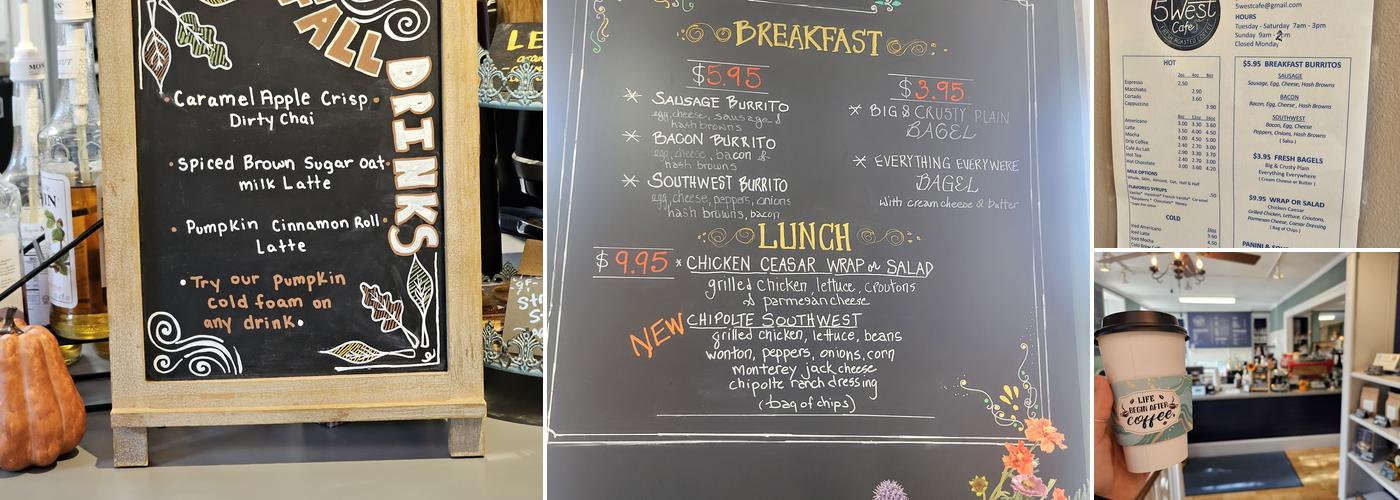 FALL
DRINKS
Caramel Apple Crisp
Dirty Chai
Spiced Brown Sugar oat
milk Latte
Pumpkin Cinnamon Roll
Latte
Try our pumpkin
cold foam on
any drink.
BREAKFAST
$5.95
* SAUSAGE BURRITO
egg, cheese, sausage &
hash browns
* BACON BURRITO
egg, cheese, bacon &
hash browns
* SOUTHWEST BURRITO
egg, cheese, peppers, onions
hash browns, bacon
$3.95
* BIG & CRUSTY PLAIN
BAGEL
* EVERYTHING EVERYWERE
BAGEL
with cream cheese & butter
LUNCH
$9.95 * CHICKEN CEASAR WRAP or SALAD
grilled chicken, lettuce, croutons
& parmesan cheese
NEW CHIPOLTE SOUTHWEST
grilled chicken, lettuce, beans
wonton, peppers, onions, corn
monterey jack cheese
chipolte ranch dressing
(bag of chips)
5West
Cafe
5westcafe@gmail.com
HOURS
Tuesday - Saturday 7am - 3pm
Sunday 9am - 2pm
Closed Monday
HOT
2oz 4oz 6oz
Espresso 2.50
Macchiato 2.90
Cortado 3.60
Cappuccino 3.90
8oz 12oz 16oz
Americano 3.00 3.30 3.60
Latte 3.50 4.00 4.50
Mocha 4.00 4.50 5.00
Drip Coffee 2.40 2.70 3.00
Cafe Au Lait 2.90 3.30 3.70
Hot Tea 2.40 2.70 3.00
Hot Chocolate 3.00 3.60 4.20
MILK OPTIONS
Whole, Skim, Almond, Oat, Half & Half
FLAVORED SYRUPS .50
COLD
Iced Americano
Iced Latte 3.60
Iced Mocha
Cold Brew 4.50
$5.95 BREAKFAST BURRITOS
SAUSAGE
Sausage, Egg, Cheese, Hash Browns
BACON
Bacon, Egg, Cheese, Hash Browns
SOUTHWEST
Bacon, Egg, Cheese
Peppers, Onions, Hash Browns
( Salsa )
$3.95 FRESH BAGELS
Big & Crusty Plain
Everything Everywhere
( Cream Cheese or Butter )
$9.95 WRAP OR SALAD
Chicken Caesar
Grilled Chicken, Lettuce, Croutons,
Parmesan Cheese, Caesar Dressing
( Bag of Chips )
LIFE
BEGIN AFTER
coffee.